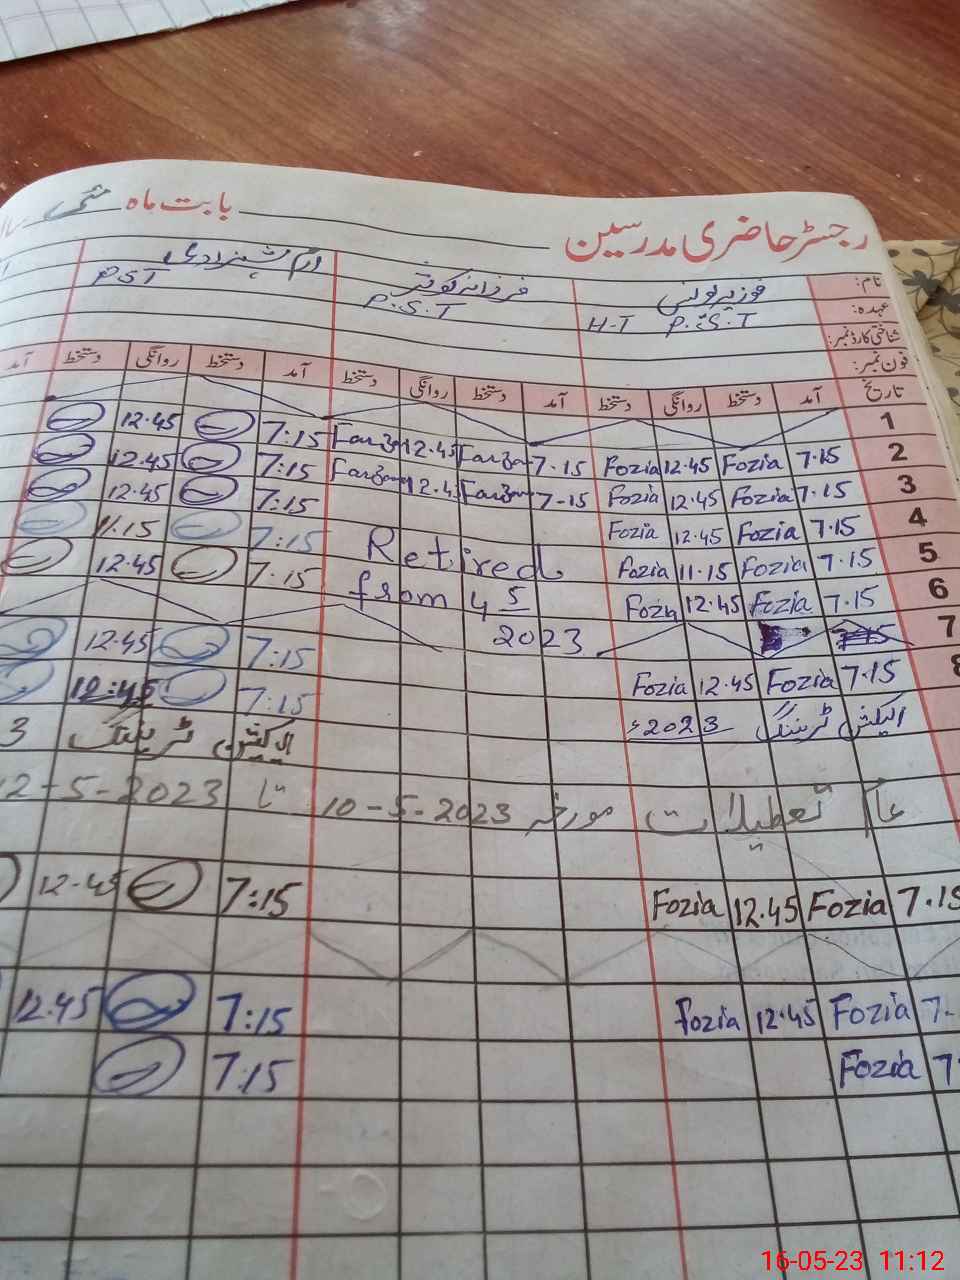 رجسٹر حاضری مدرسین بابت ماہ مئی
نام: فوزیہ یونس فرزانہ کوثر ارم شہزادی
عہدہ: P.S.T H-T P.S.T PST
شناختی کارڈ نمبر:
فون نمبر:
تاریخ آمد دستخط روانگی دستخط آمد دستخط روانگی دستخط آمد دستخط روانگی دستخط آمد
1
2 7.15 Fozia 12.45 Fozia 7.15 Farzan 12.45 Farzan 7:15 12.45
3 7.15 Fozia 12.45 Fozia 7-15 Farzan 12.45 Farzan 7:15 12.45
4 7.15 Fozia 12.45 Fozia 7:15 12.45
5 7.15 Fozia 11.15 Fozia Retired 7:15 11.15
6 7.15 Fozia 12.45 Fozia from 4 5 7.15 12.45
7 2023
8 7.15 Fozia 12.45 Fozia 7:15 12.45
7:15 12:45
الیکشن ٹریننگ 2023ء
الیکشن ٹریننگ 3
عام تعطیلات مورخہ 10-5-2023 تا 12-5-2023
7.15 Fozia 12.45 Fozia 7:15 12-45
7. Fozia 12.45 fozia 7:15 12.45
7 Fozia 7:15
16-05-23 11:12